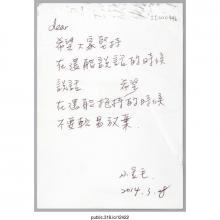 dear
希望大家堅持
在還能說話的時候
說話 希望
在還能抱持的時候
不要輕易放棄.
2014.3.28
public.318.io/12622